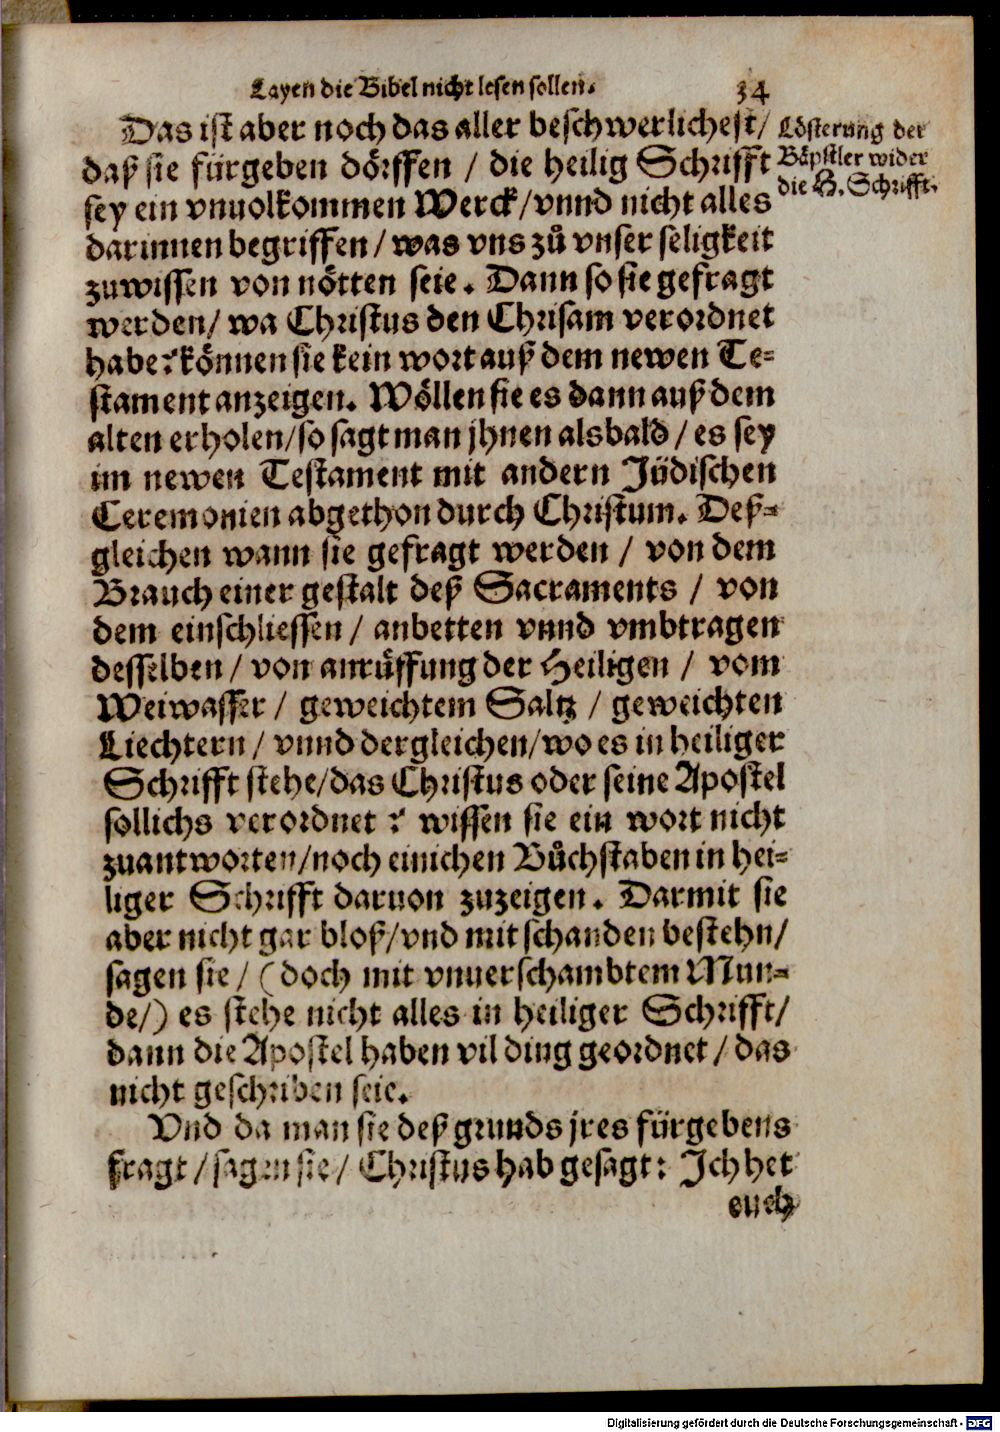 Layen die Bibel nicht lesen sollen. 34
Das ist aber noch das aller beschwerlichest/
daß sie fürgeben dörffen / die heilig Schrifft
sey ein vnuolkommen Werck/vnnd nicht alles
darinnen begriffen/was vns zů vnser seligkeit
zuwissen von nötten seie. Dann so sie gefragt
werden/ wa Christus den Chrisam verordnet
habe? können sie kein wort auß dem newen Te-
stament anzeigen. Wöllen sie es dann auß dem
alten erholen/so sagt man jhnen alsbald / es sey
im newen Testament mit andern Jüdischen
Ceremonien abgethon durch Christum. Deß-
gleichen wann sie gefragt werden / von dem
Brauch einer gestalt deß Sacraments / von
dem einschliessen / anbetten vnnd vmbtragen
desselben / von anrüffung der Heiligen / vom
Weiwasser / geweichtem Saltz / geweichten
Liechtern / vnnd dergleichen/wo es in heiliger
Schrifft stehe/das Christus oder seine Apostel
sollichs verordnet? wissen sie ein wort nicht
zuantworten/noch einichen Bůchstaben in hei-
liger Schrifft daruon zuzeigen. Darmit sie
aber nicht gar bloß/vnd mit schanden bestehn/
sagen sie / (doch mit vnuerschambtem Mun-
de/) es stehe nicht alles in heiliger Schrifft/
dann die Apostel haben vil ding geordnet / das
nicht geschriben seie.
Vnd da man sie deß grunds jres fürgebens
fragt / sagen sie / Christus hab gesagt: Ich het
euch
Lösterung der
Bäpstler wider
die H. Schrifft.
Digitalisierung gefördert durch die Deutsche Forschungsgemeinschaft - DFG